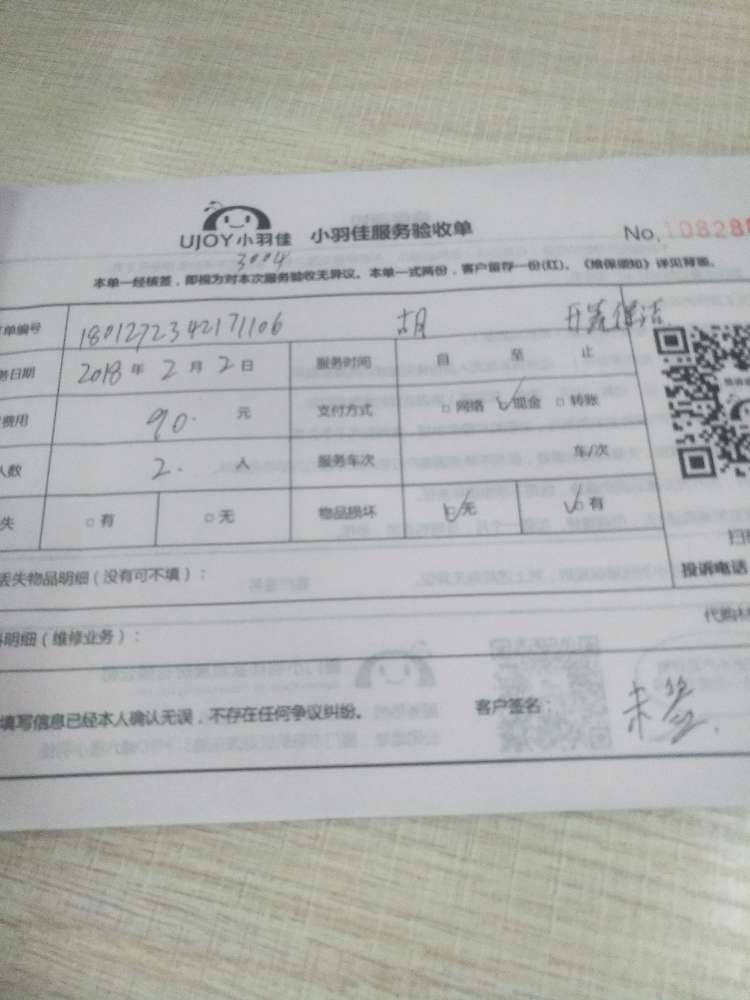 UJOY小羽佳 小羽佳服务验收单 No.108288
3004
本单一经核签，即视为对本次服务验收无异议。本单一式两份，客户留存一份(红)。《维保须知》详见背面。
单编号 1801272342171106 胡 开荒保洁
务日期 2018 年 2 月 2 日 服务时间 自 至 止
费用 90. 元 支付方式 □ 网络 ☑ 现金 □ 转账
人数 2. 人 服务车次 车/次
失 □ 有 □ 无 物品损坏 ☑ 无 ☑ 有
扫
丢失物品明细（没有可不填）： 投诉电话
明细（维修业务）： 代购
填写信息已经本人确认无误，不存在任何争议纠纷。 客户签名：